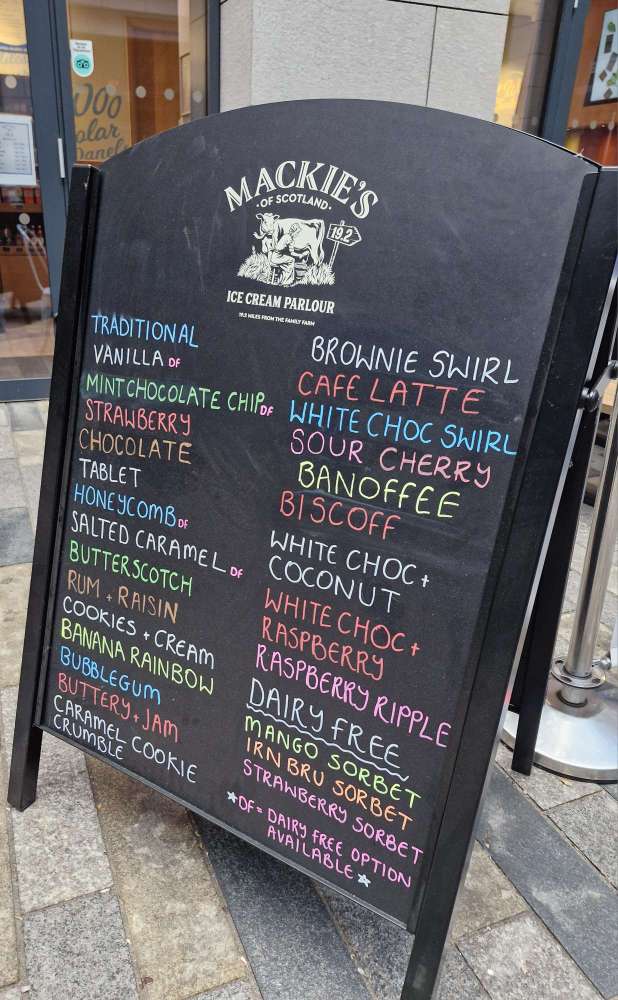 Woo
olar
Panels
MACKIE'S
· OF SCOTLAND ·
19.2
ICE CREAM PARLOUR
19.2 MILES FROM THE FAMILY FARM
TRADITIONAL
VANILLA DF
MINT CHOCOLATE CHIP DF
STRAWBERRY
CHOCOLATE
TABLET
HONEYCOMB DF
SALTED CARAMEL DF
BUTTERSCOTCH
RUM + RAISIN
COOKIES + CREAM
BANANA RAINBOW
BUBBLEGUM
BUTTERY + JAM
CARAMEL COOKIE
CRUMBLE
BROWNIE SWIRL
CAFE LATTE
WHITE CHOC SWIRL
SOUR CHERRY
BANOFFEE
BISCOFF
WHITE CHOC +
COCONUT
WHITE CHOC +
RASPBERRY
RASPBERRY RIPPLE
DAIRY FREE
MANGO SORBET
IRN BRU SORBET
STRAWBERRY SORBET
*DF = DAIRY FREE OPTION
AVAILABLE *